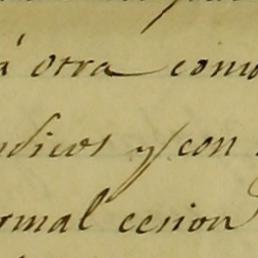 á otra como
ndicos y con
ormal cesion